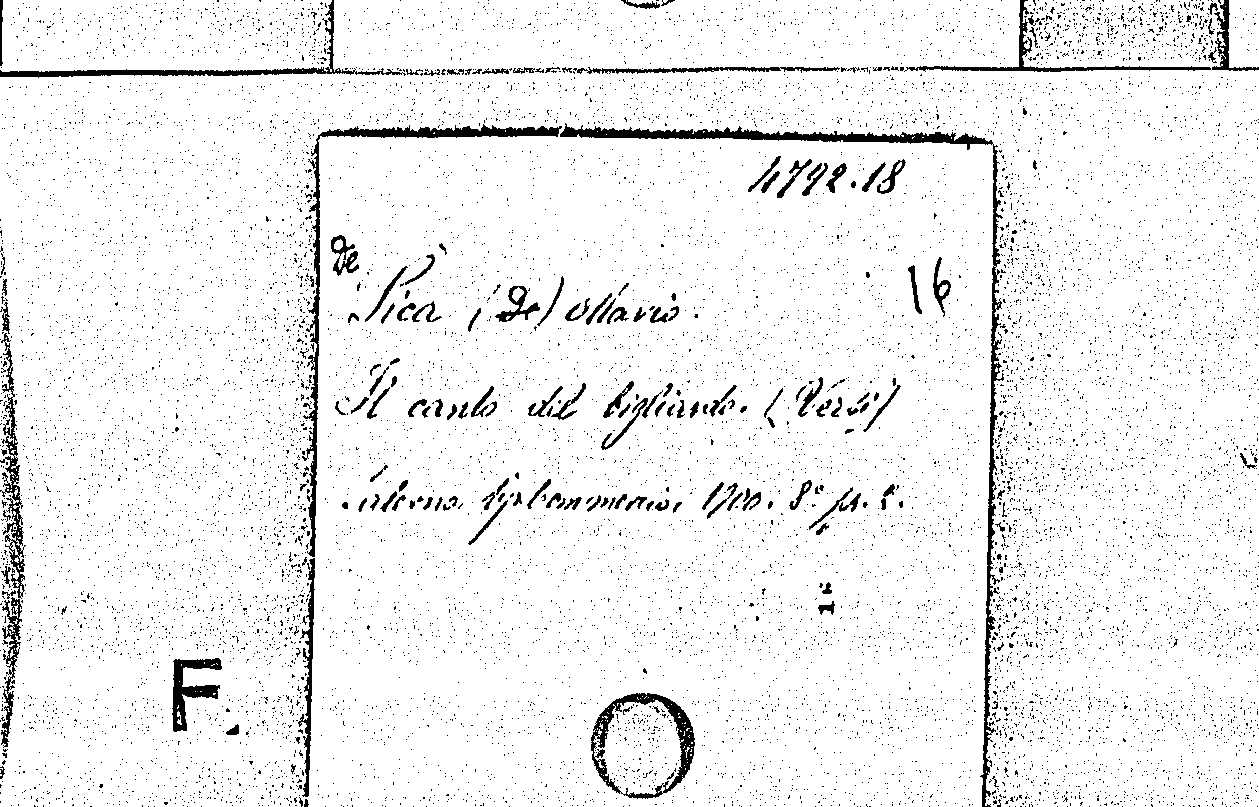 4792.18
De
Pica (De) Ottavio.
16
Il canto del bigliardo. (Versi)
Salerno. tip. Commercio. 1900. 8° p.
1*
F.